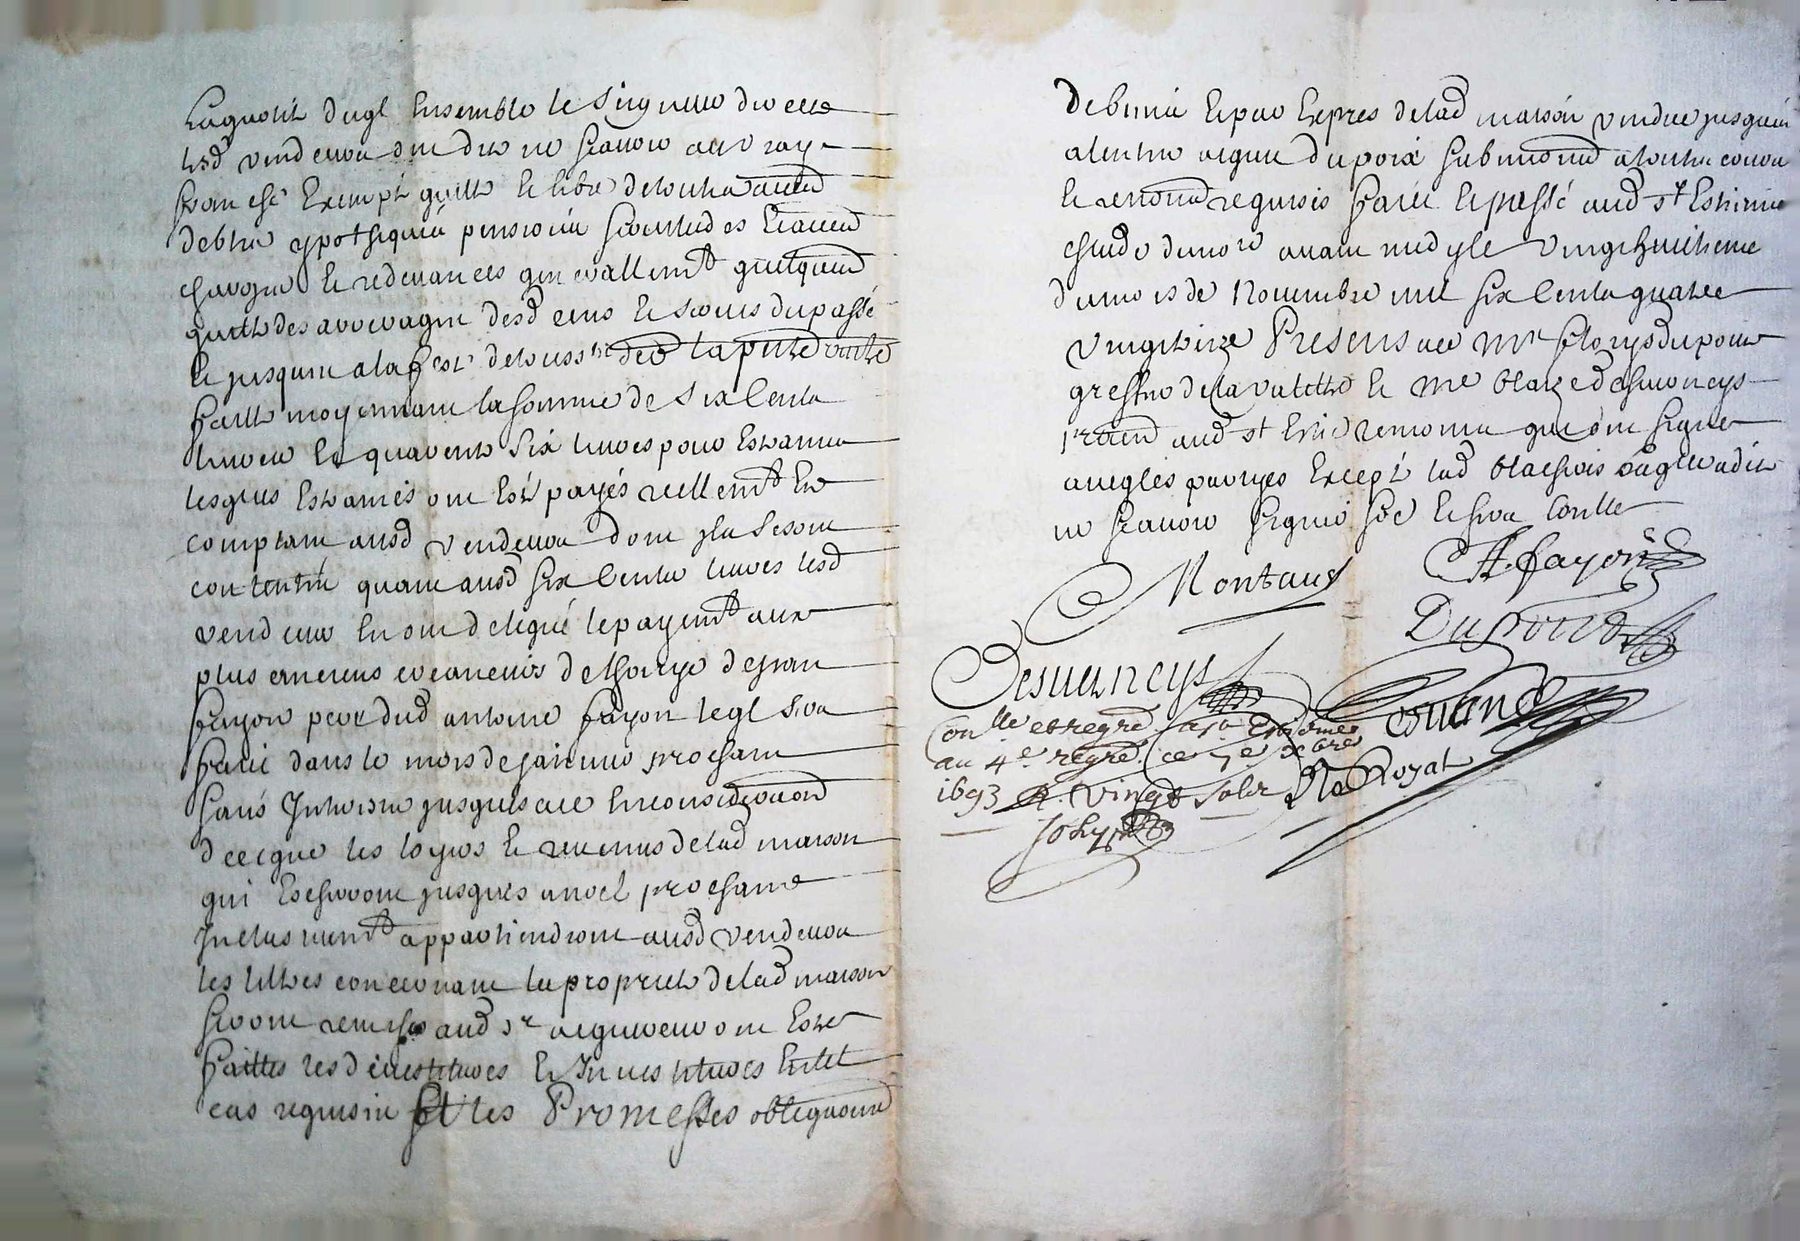 La quotité d'icelle Ensemble le Seigneur d'icelle
lesd vendeurs ont dit ne scavoir au vray
franche Exempte quitte et libre de toutes autres
debtes ypotheques pensions servitudes Et autres
charges et redevances generallemt quelqueonques
quitte des arrerages desd cens et servis du passé
et jusques a la feste de Toussts dere la pnte vente
faitte moyennant la somme de six Cents
livres Et quarente six livres pour Estrainnes
lesquels Estraines ont Esté payés reellemt Et
comptant ausd vendeurs dont ils se sont
contentés quant ausd six Cents livres lesd
vendeurs En ont delegué le payemt aux
plus entiens creanciers de lhoirye de Jean
fayon pere dud antoine fayon lequel sera
fait dans le mois de janvier prochain
sans Interest jusques alors En consideraon
de ce que les loyers et revenus de lad maison
qui Escherront jusques a noel prochain
Inclusivemt appartiendront ausd vendeurs
les tiltres concernant la proprieté de lad maison
seront remises aud sr acquereur ont Esté
faittes les devestitures Et Investitures En tel
cas requises Et les Promesses obligaons
de biens Et par Expres de lad maison vendue jusques
a lentier acquit du prix submissions a toutes cours
et renonons requises fait Et passé aud st Estienne
estude du nore avant midy le vingt huitieme
du mois de Novembre mil six Cents quatre
Vingt treize Presens a ce Mre florys dupoid
greffier de la vallette et Me blaize desverneys
prattn aud st Estiene temoins qui ont signé
avec les partyes Excepté lad blachois laquelle a dit
ne scavoir signer soe Et sera Conlle
Montaus A. fayon
Desverneys Dupoid
Coulland
Conllé et regré a St Estienne
au 4e regre. ce 7e Xbre
1693 R. vingt sols De Royat